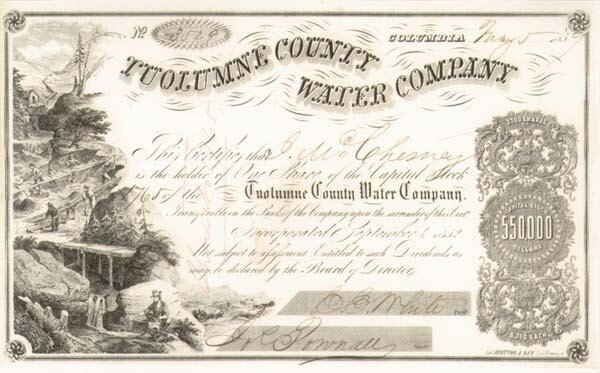 No. 3529 COLUMBIA May 5
TUOLUMNE COUNTY
WATER COMPANY
This Certifies that J. McChesney
is the holder of One Share of the Capital Stock
of the Tuolumne County Water Company.
Transferable on the Books of the Company upon the surrender of this Cert
Incorporated September 1, 1852
Not subject to assessment Entitled to such Dividends as
may be declared by the Board of Directors
2200 SHARES
CAPITAL STOCK
550,000
DOLLARS
$,250 EACH.
White
Jos. Pownall
Lith. BRITTON & REY San Francisco